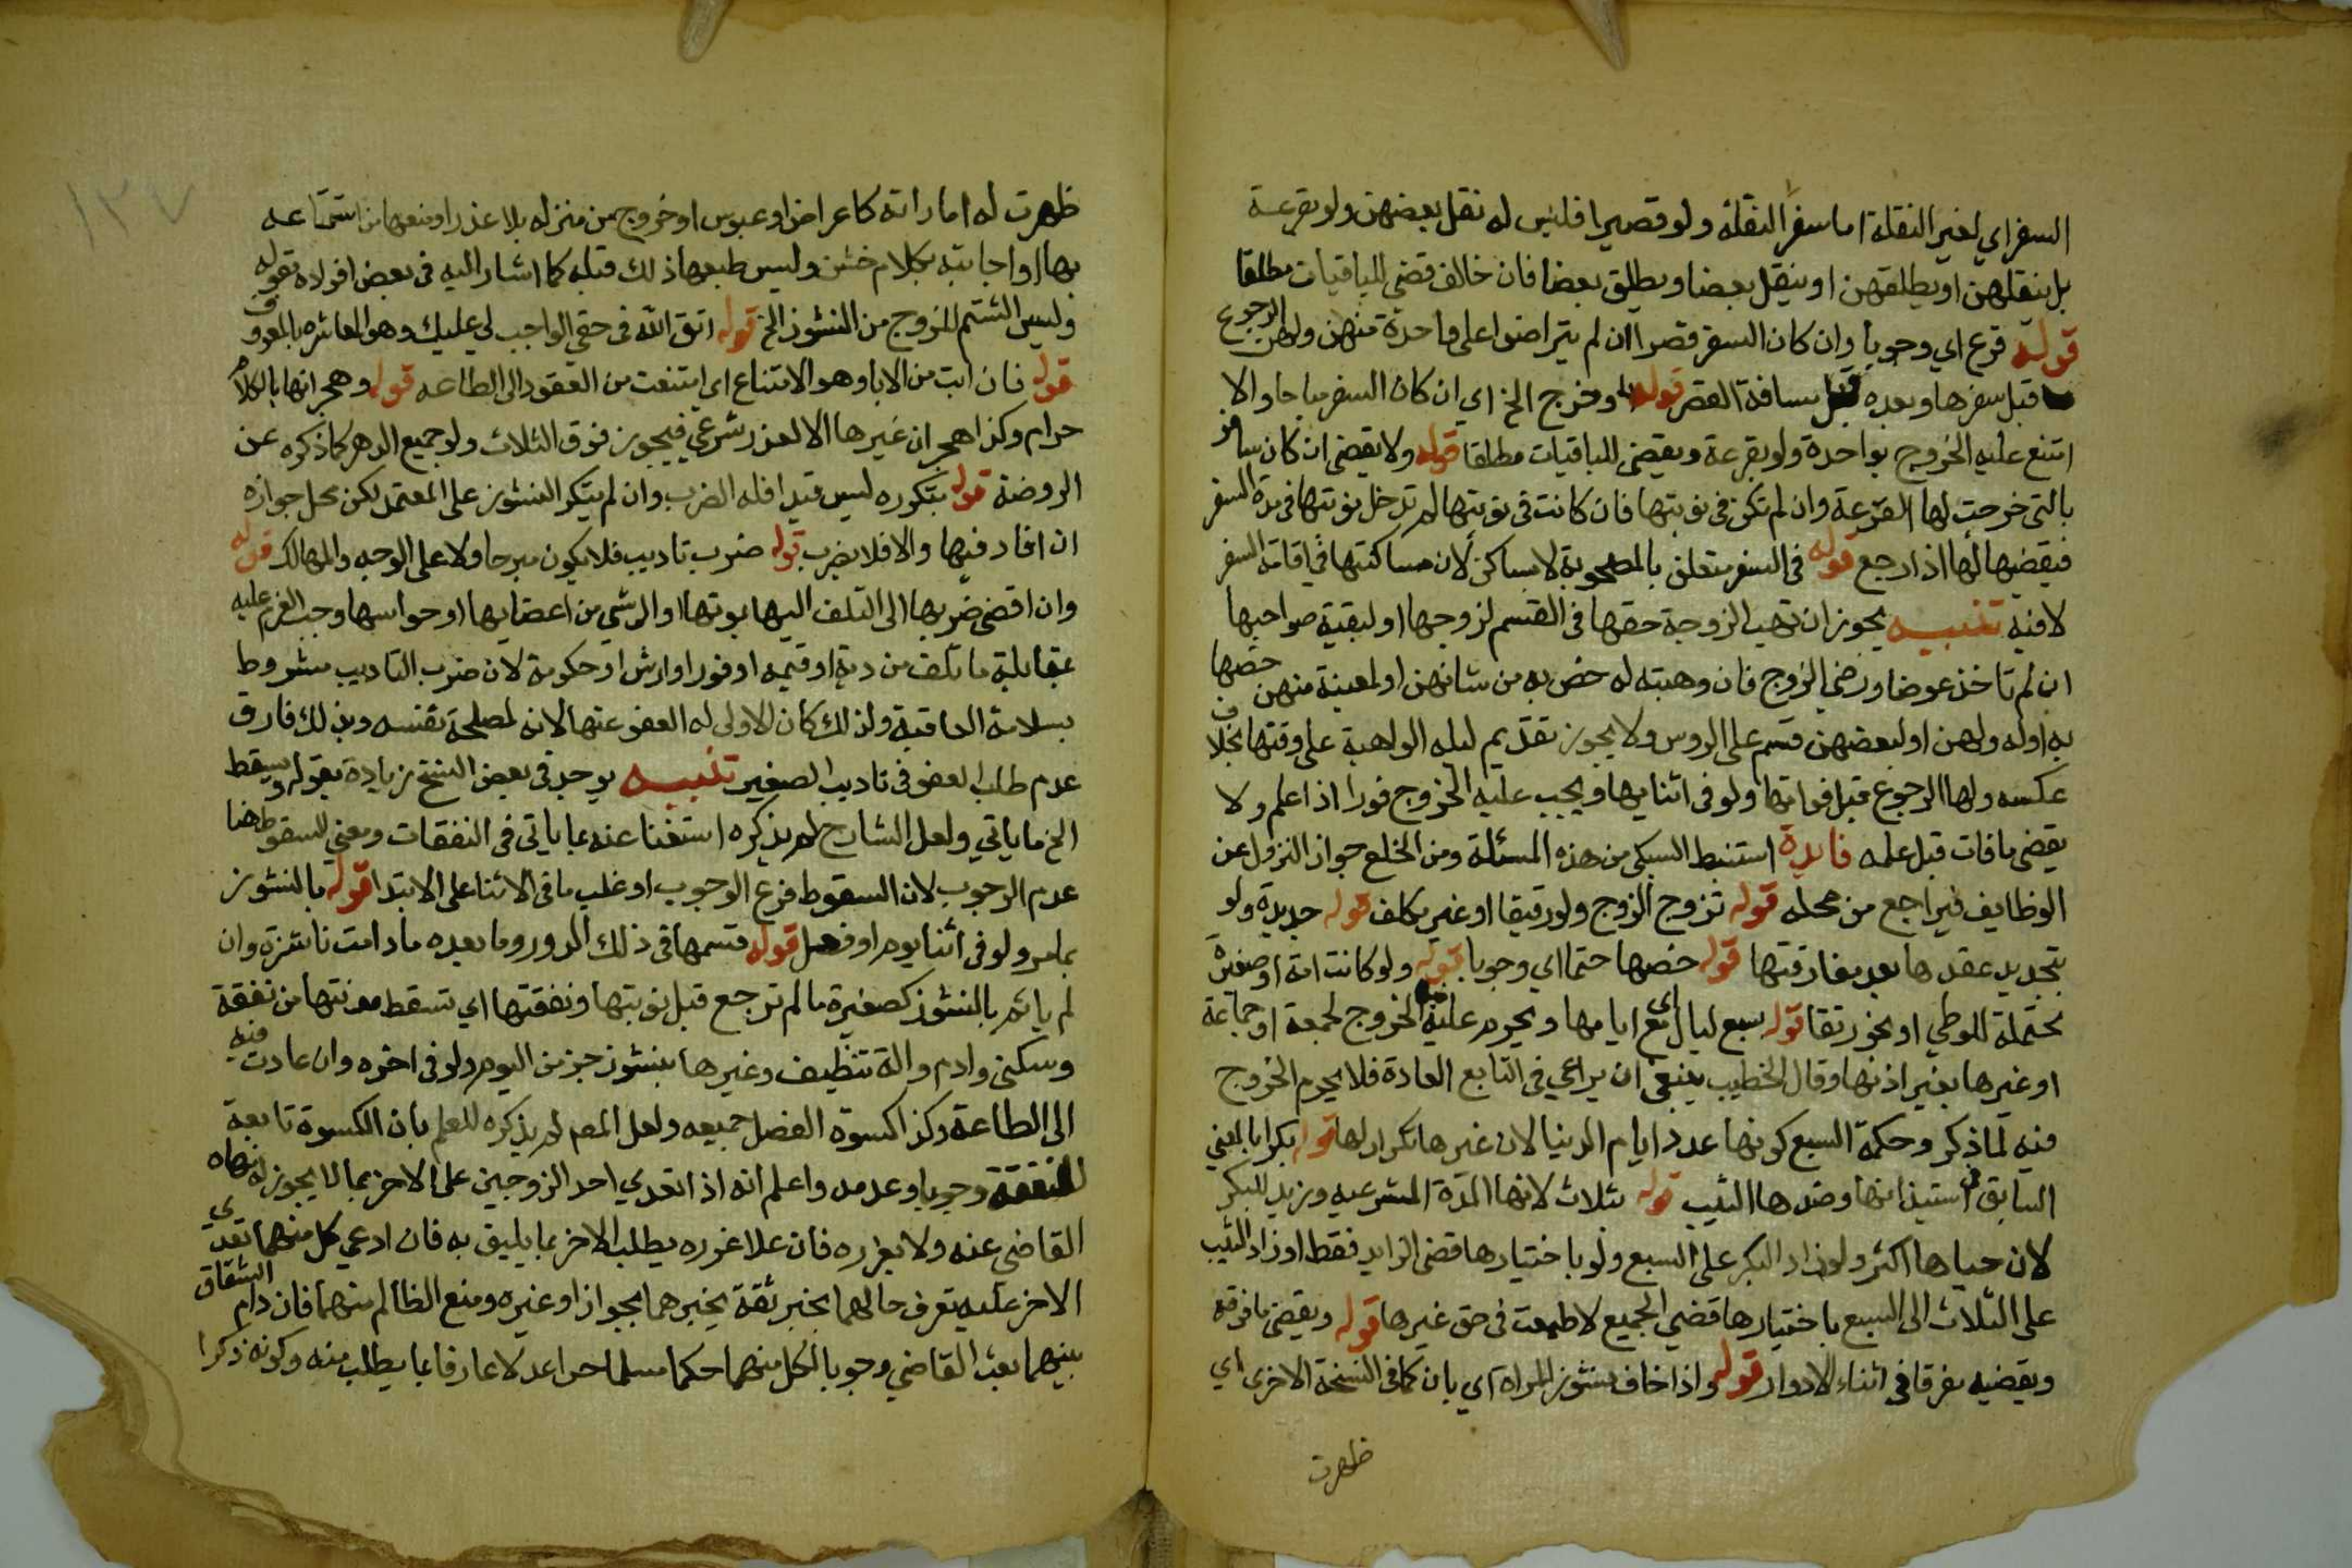 السفر اي لغير النقلة اما سفر النقلة ولو قصيرا فليس له نقل بعضهن ولو بقرعة
بل ينقلهن او يطلقهن او ينقل بعضا ويطلق بعضا فان خالف قضي للباقيات مطلقا
قوله قرع اي وجوبا وان كان السفر قصرا ان لم يتراضوا على واحدة منهن ولهن الرجوع
قبل سفرها وبعده قبل مسافة القصر قوله وخرج الخ اي ان كان السفر مباحا والا
امتنع عليه الخروج بواحدة ولو بقرعة ويقضي للباقيات مطلقا قوله ولا يقضي ان كان سافر
بالتي خرجت لها القرعة وان لم تكن في نوبتها فان كانت في نوبتها لم تدخل نوبتها في مدة السفر
فيقضيها لها اذا رجع قوله في السفر متعلق بالمصحوبة لا بساكن لان مساكنتها في اقامة السفر
لا فيه تنبيه يجوز ان تهب الزوجة حقها في القسم لزوجها او لبقية صواحبها
ان لم تاخذ عوضا ورضي الزوج فان وهبته له خص به من شا منهن او لمعينة منهن خصها
به اوله ولهن او لبعضهن قسم على الروس ولا يجوز تقديم ليلة الواهبة على وقتها بخلاف
عكسه ولها الرجوع قبل فواتها ولو في اثنايها ويجب عليه الخروج فورا اذا علم ولا
يقضي ما فات قبل علمه فايدة استنبط السبكي من هذه المسئلة ومن الخلع جواز النزول عن
الوظايف فيراجع من محله قوله تزوج الزوج ولو رقيقا او غير مكلف قوله جديدة ولو
بتجديد عقدها بعد مفارقتها قوله خصها حتما اي وجوبا قوله ولو كانت امة او صغيرة
محتملة للوطي او نحو رتقا قوله سبع ليال اي مع ايامها ويحرم عليه الخروج لجمعة او جماعة
او غيرها بغير اذنها وقال الخطيب ينبغي ان يراعي في التابع العادة فلا يحرم الخروج
فيه لما ذكر وحكمة السبع كونها عدد ايام الدنيا لان غيرها تكرار لها قوله بكرا بالمعني
السابق في استيذانها وضدها الثيب قوله بثلاث لانها المدة الشرعيه وزيد للبكر
لان حياها اكثر ولو زاد البكر على السبع ولو باختيارها قضي الزايد فقط او زاد الثيب
على الثلاث الى السبع باختيارها قضي الجميع لا طمعت في حق غيرها قوله ويقضي ما فرقه
ويقضيه مفرقا في اثناء الادوار قوله واذا خاف نشوز المراة اي بان كما في النسخة الاخرى اي
ظهرت
ظهرت له اماراته كاعراض او عبوس او خروج من منزله بلا عذر او منعها من استمتاعه
بها او اجابته بكلام خشن وليس طبعها ذلك قبله كما اشار اليه في بعض افراده بقوله
وليس الشتم للزوج من النشوز الخ قوله اتق الله في حقي الواجب لي عليك وهو المعاشره بالمعروف
قوله فان ابت من الابا وهو الامتناع اي امتنعت من العود الى الطاعه قوله وهجرانها بالكلام
حرام وكذا هجران غيرها الا لعذر شرعي فيجوز فوق الثلاث ولو جميع الدهر كما ذكره عن
الروضة قوله بتكرره ليس قيدا فله الضرب وان لم يتكرر النشوز على المعتمد لكن محل جوازه
ان افاد فيها والا فلا يضرب قوله ضرب تاديب فلا يكون مبرحا ولا على الوجه والمهالك قوله
وان افضى ضربها الى التلف اليها بموتها او الى شي من اعضايها او حواسها وجب الغرم عليه
بمقابلة ما تلف من دية او قيمه او فورا او ارش او حكومة لان ضرب التاديب مشروط
بسلامة العاقبة ولذلك كان الاولى له العفو عنها لانه لمصلحة نفسه وبذلك فارق
عدم طلب العفو في تاديب الصغير تنبيه يوجد في بعض النسخ زيادة بقوله ويسقط
الخ ما ياتي ولعل الشارح لم يذكره استغنا عنه بما ياتي في النفقات ومعني السقوط هنا
عدم الوجوب لان السقوط فرع الوجوب او غلب ما في الاثنا على الابتدا قوله بالنشوز
بما مر ولو في اثنا يوم او فصل قوله قسمها في ذلك الدور وما بعده ما دامت ناشزة وان
لم ياثم بالنشوز كصغيرة ما لم ترجع قبل نوبتها ونفقتها اي تسقط مونتها من نفقة
وسكنى وادم والة تنظيف وغيرها بنشوز جز من اليوم ولو في اخره وان عادت فيه
الى الطاعة وكذا كسوة الفصل جميعه ولعل المص لم يذكره للعلم بان الكسوة تابعة
للنفقة وجوبا وعدمه واعلم انه اذا تعدي احد الزوجين على الاخر بما لا يجوز له نهاه
القاضي عنه ولا يعزره فان عاد عزره بطلب الاخر بما يليق به فان ادعي كل منهما تعدي
الاخر عليه تعرف حالهما بخبر ثقة يخبرهما بجوار او غيره ومنع الظالم منهما فان دام الشقاق
بينهما بعث القاضي وجوبا لكل منهما حكما مسلما حرا عدلا عارفا بما يطلب منه وكونه ذكرا